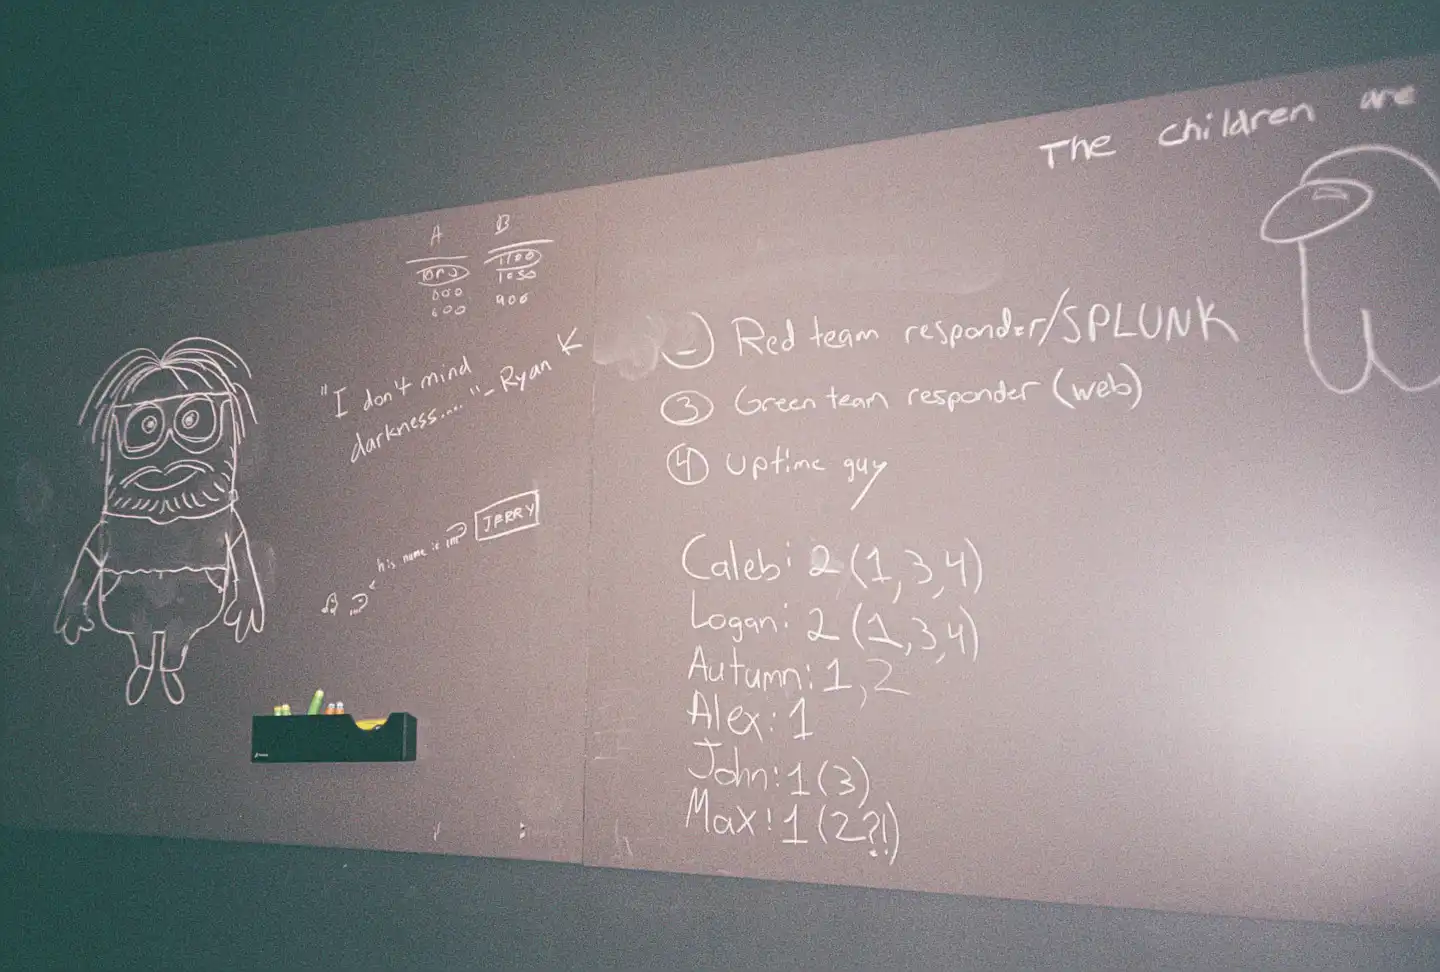 The children are
A B
1100
1050
600 900
"I don't mind
darkness...." - Ryan
Red team responder/SPLUNK
③ Green team responder (web)
④ uptime guy
his name is
JERRY
Caleb: 2 (1,3,4)
Logan: 2 (1,3,4)
Autumn: 1,2
Alex: 1
John: 1 (3)
Max: 1 (2?!)